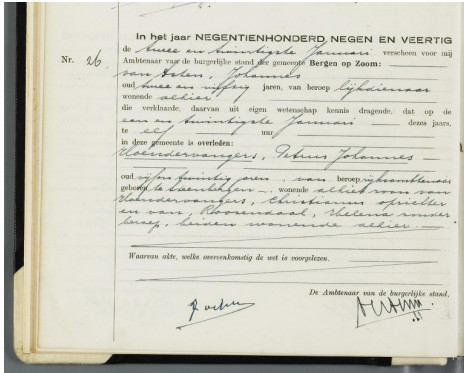 In het jaar NEGENTIENHONDERD NEGEN EN VEERTIG
Nr. 26. de twee en twintigste Januari verscheen voor mij
Ambtenaar van de burgerlijke stand der gemeente Bergen op Zoom:
van Asten, Johannes
oud twee en vijftig jaren, van beroep lijkdienaar
wonende alhier,
die verklaarde, daarvan uit eigen wetenschap kennis dragende, dat op de
een en twintigste Januari dezes jaars,
te elf uur
in deze gemeente is overleden:
Hoendervangers, Petrus Johannes
oud vijf en twintig jaren van beroep rijksambtenaar
geboren te Steenbergen wonende alhier zoon van
Hoendervangers, Christianus opzichter
en van Roosendaal, Helena zonder
beroep, beiden wonende alhier.
Waarvan akte, welke overeenkomstig de wet is voorgelezen.
De Ambtenaar van de burgerlijke stand,